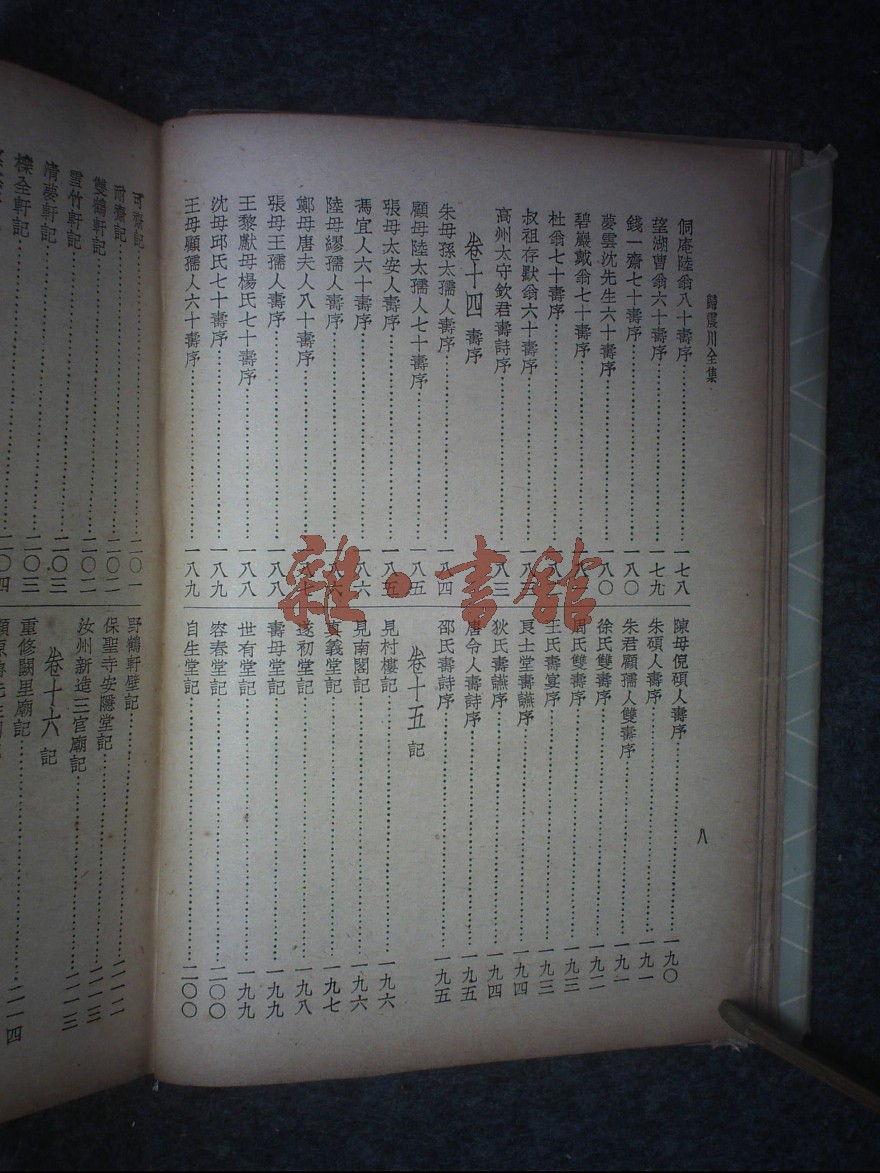 歸震川全集
侗庵陸翁八十壽序……一七八
望湖曹翁六十壽序……一七九
錢一齋七十壽序……一八〇
夢雲沈先生六十壽序……一八〇
碧巖戴翁七十壽序……一八
杜翁七十壽序……一八
叔祖存默翁六十壽序……一八
高州太守欽君壽詩序……一八三
卷十四 壽序
朱母孫太孺人壽序……一八四
顧母陸太孺人七十壽序……一八五
張母太安人壽序……一八五
馮宜人六十壽序……一八六
陸母繆孺人壽序……一八六
鄭母唐夫人八十壽序……一八七
張母王孺人壽序……一八八
王黎獻母楊氏七十壽序……一八八
沈母邱氏七十壽序……一八九
王母顧孺人六十壽序……一八九
陳母倪碩人壽序……一九〇
朱碩人壽序……一九一
朱君顧孺人雙壽序……一九一
徐氏雙壽序……一九二
周氏雙壽序……一九三
王氏壽宴序……一九三
良士堂壽讌序……一九四
狄氏壽讌序……一九四
唐令人壽詩序……一九五
邵氏壽詩序……一九五
卷十五 記
見村樓記……一九六
見南閣記……一九六
真義堂記……一九七
遂初堂記……一九八
壽母堂記……一九九
世有堂記……一九九
容春堂記……二〇〇
自生堂記……二〇〇
八
可齋記……二〇一
耐齋記……二〇一
雙鶴軒記……二〇二
雪竹軒記……二〇二
清夢軒記……二〇三
櫟全軒記……二〇三
二〇四
野鶴軒壁記……二一二
保聖寺安隱堂記……二一三
汝州新造三官廟記……二一三
卷十六 記
重修闕里廟記……二一四
雜·書館